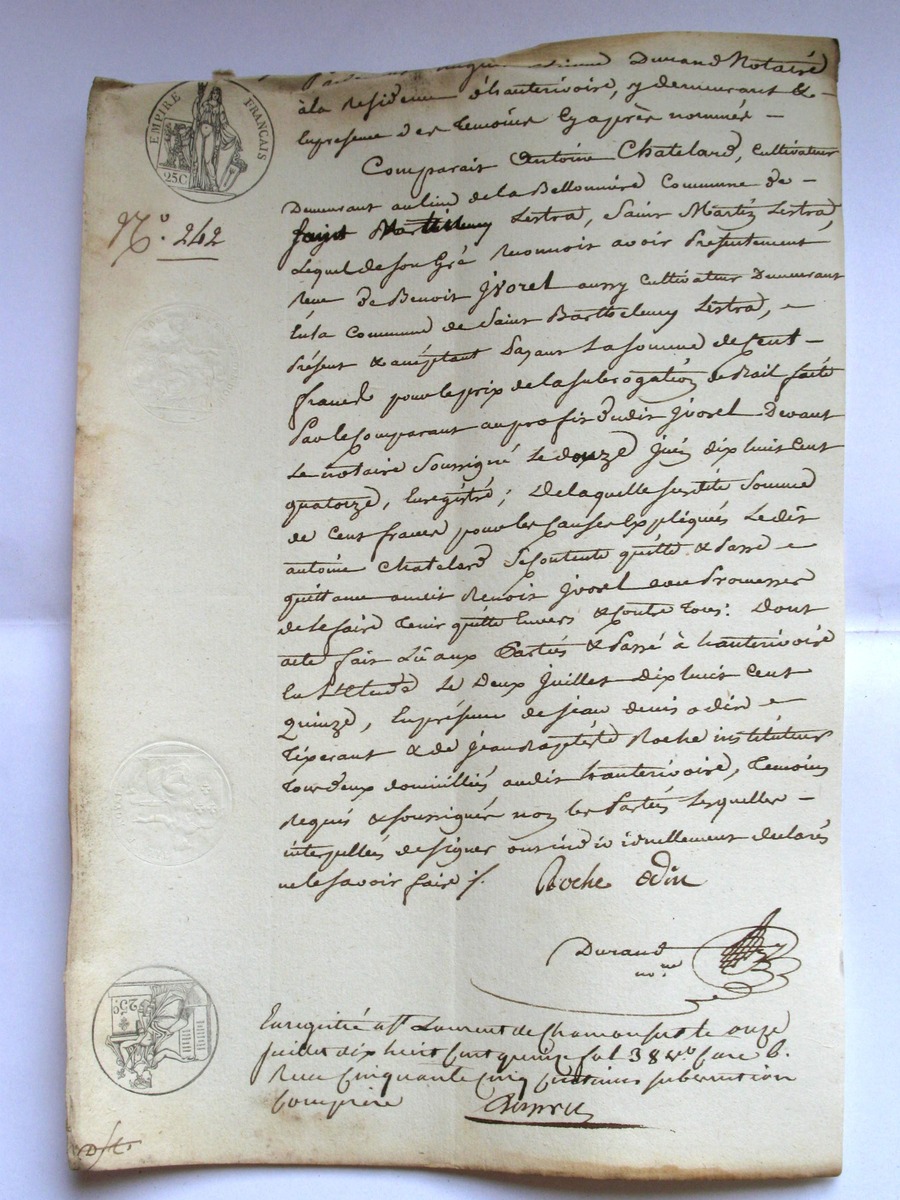 Durand Notaire
EMPIRE FRANÇAIS
25C
à la Residence d'hauterivoire, y demeurant &
En presence des temoins Cy après nommés
Comparait Antoine Chatelard, Cultivateur
N.º 242
Demeurant au lieu de la Bellonnière Commune de
Lestra, Saint Martin Lestra
Lequel de son Gré Reconnoit avoir Présentement
Reçu de Benoit Jvorel aussy Cultivateur Demeurant
En la Commune de Saint Barthelemy Lestra,
Présent & acceptant La Somme de Cent
francs pour le prix de la subrogation de Bail faite
Par le Comparant au profit dudit Jvorel Devant
Le notaire soussigné Le douze Juin dix huit Cent
quatorze, Enregistré; De laquelle susdite Somme
de Cent francs pour les Causes Expliqués Le dit
antoine Chatelard se Contente quitte & Passe
quittance audit Benoit Jvorel avec Promesses
de le faire tenir quitte Envers & Contre tous: Dont
acte fait Lû aux Parties & Passé à hauterivoire
En l'Etude Le Deux Juillet dix huit Cent
Quinze, En présence de Jean denis odin
& de Jean Baptiste Roche instituteur
tous deux domiciliés audit hauterivoire, temoins
Requis & soussignés non les Parties Lesquelles
interpellées de signer ont individuellement declarés
ne le savoir faire
Roche Odin
Durand
no.re
25C
Enregistré à St Laurent de Chamousset le onze
Juillet dix huit cent quinze fol 38 v.o Case 6.
Reçu Cinquante Cinq Centimes subvention
Comprise